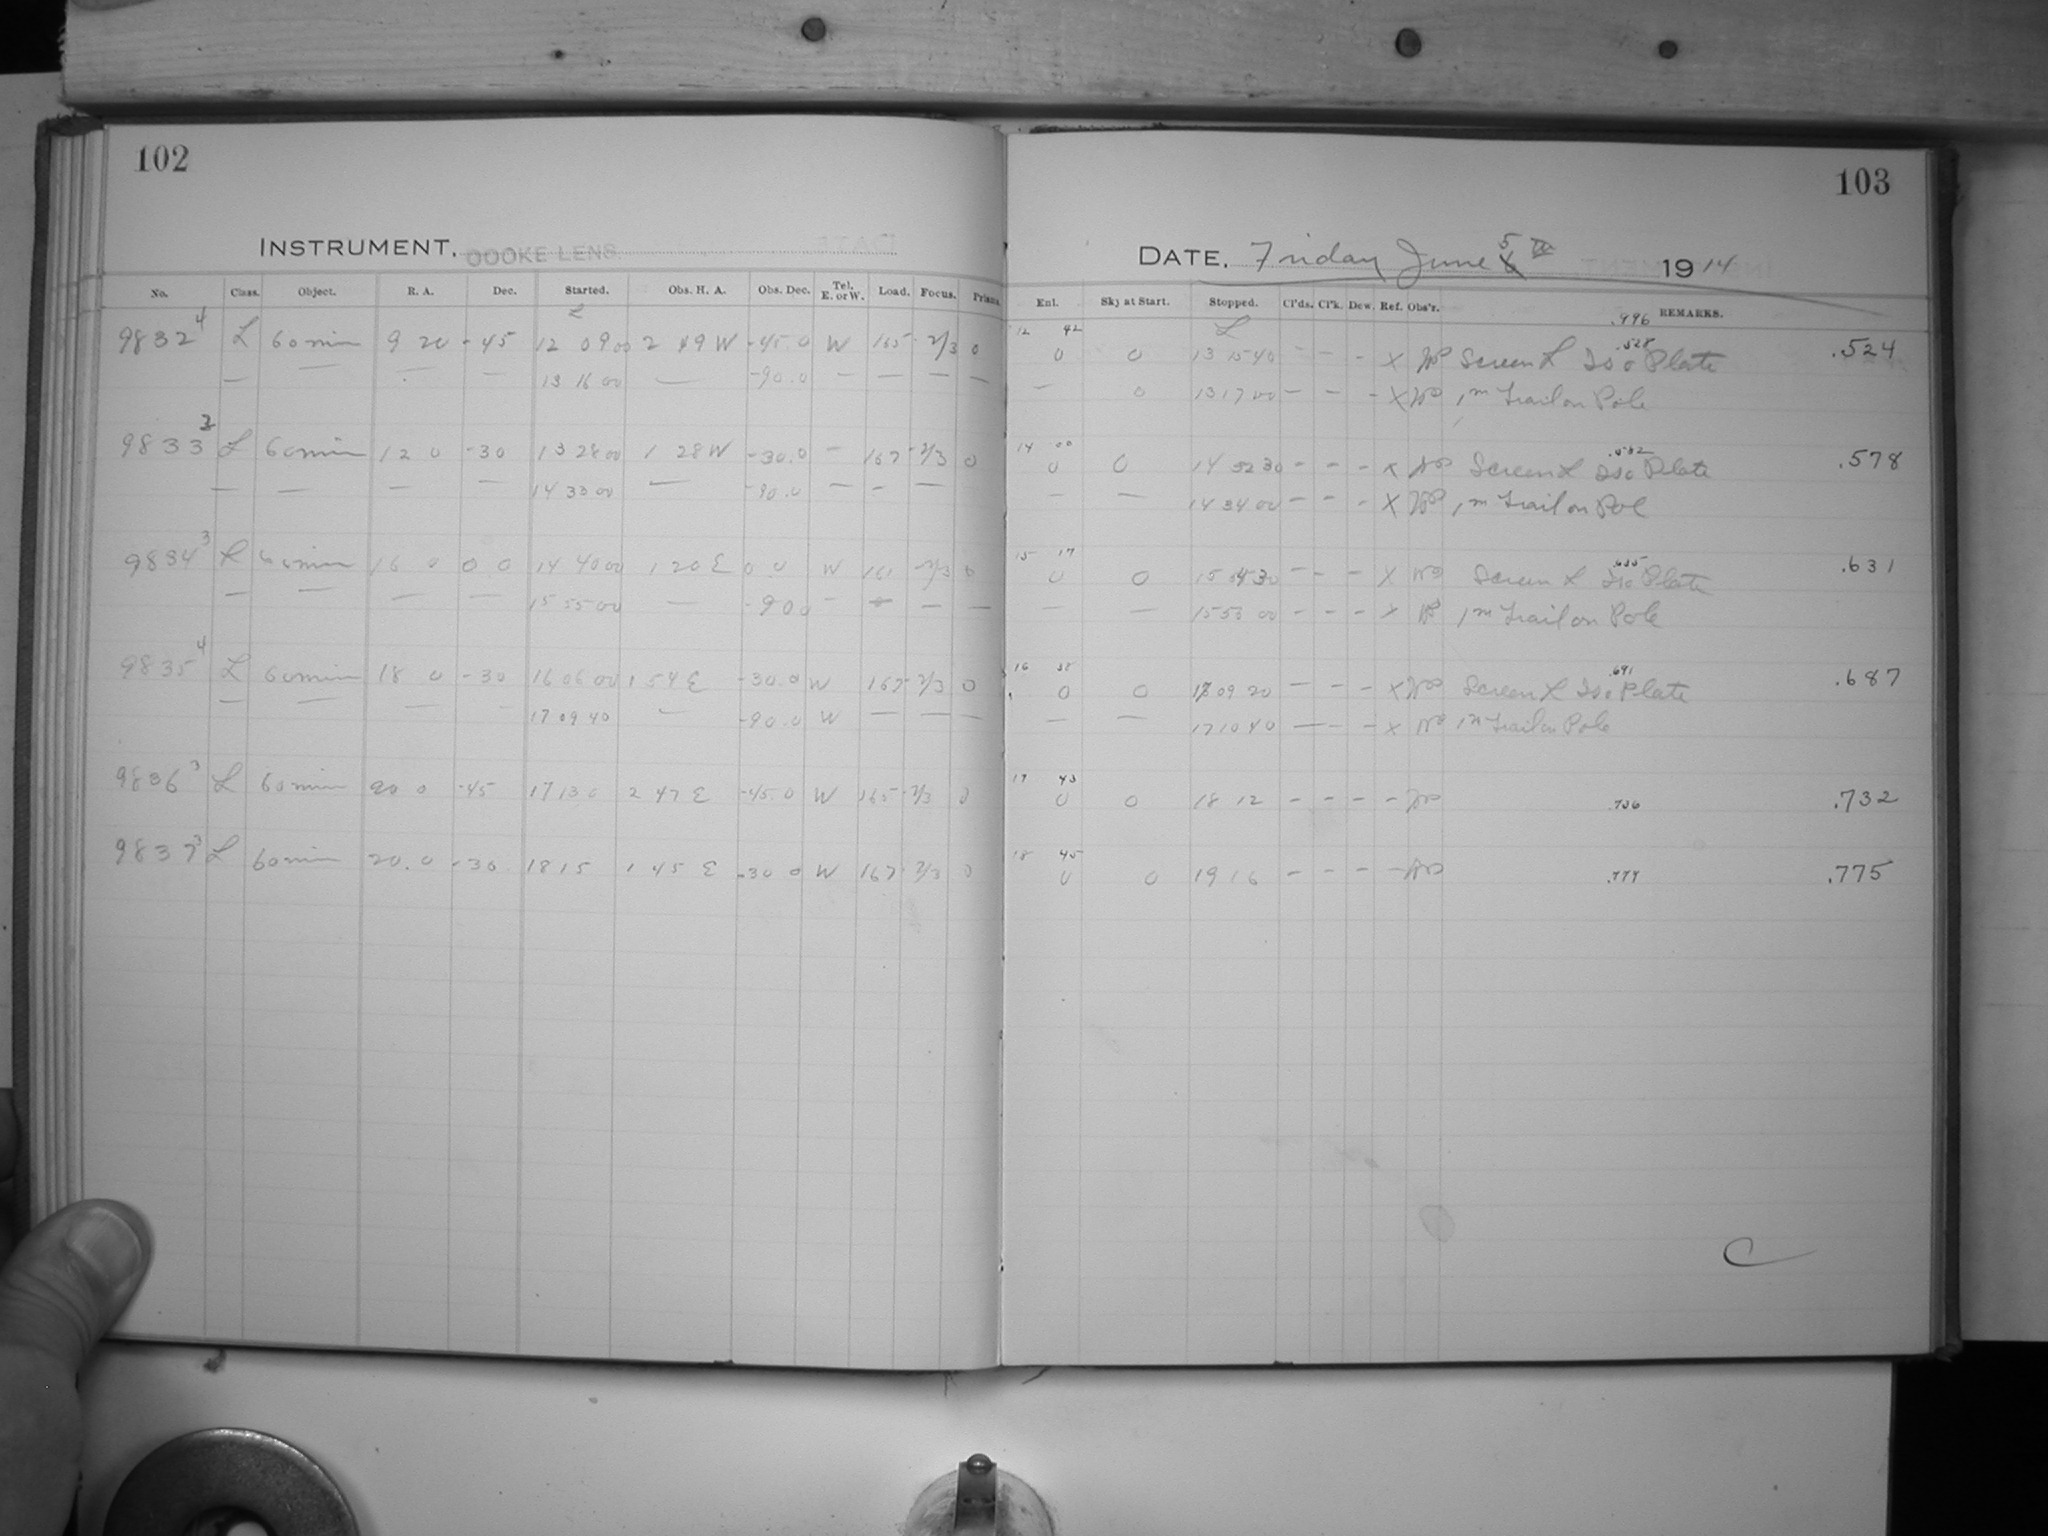 102
INSTRUMENT. COOKE LENS
No. Class. Object. R. A. Dec. Started. Obs. H. A. Obs. Dec. Tel. E. or W. Load. Focus. Prisms.
L
9832 4 L 60 min 9 20 -45 12 09 00 2 49 W -45.0 W 165 -2/3 0
— — — — 13 16 00 — -90.0 — — — —
9833 3 L 60 min 12 0 -30 13 28 00 1 28 W -30.0 — 167 -2/3 0
— — — — 14 33 00 — -90.0 — — —
9834 3 L 60 min 16 0 0 0 14 40 00 1 20 E 0 0 W 161 -2/3 0
— — — — 15 55 00 — -90 0 — — — —
9835 4 L 60 min 18 0 -30 16 06 00 1 54 E -30.0 W 167 -2/3 0
— — — — 17 09 40 — -90.0 W — — —
9836 3 L 60 min 20 0 -45 17 13 0 2 47 E -45.0 W 165 -2/3 0
9837 3 L 60 min 20.0 -30 18 15 1 45 E -30 0 W 167 -2/3 0
103
DATE. Friday June 5 th 1914
Enl. Sky at Start. Stopped. Cl'ds. Cl'k. Dew. Ref. Obs'r. REMARKS.
.996
12 42 L .528
0 0 13 15 40 — — - X Screen L Iso Plate .524
— 0 13 17 00 — — - X 1m Trail on Pole
14 00 .582
0 0 14 32 30 - - - X Screen L Iso Plate .578
— — 14 34 00 - - - X 1m Trail on Pol
15 17 .635
0 0 15 30 - - - X Screen L Iso Plate .631
— — 15 53 00 - - - X 1m Trail on Pole
16 38 .691
0 0 17 09 20 - - - X Screen L Iso Plate .687
— — 17 10 40 — - - X 1m Trail on Pole
17 43
0 0 18 12 - - - - .736 .732
18 45
0 0 19 16 - - - - .779 .775
C